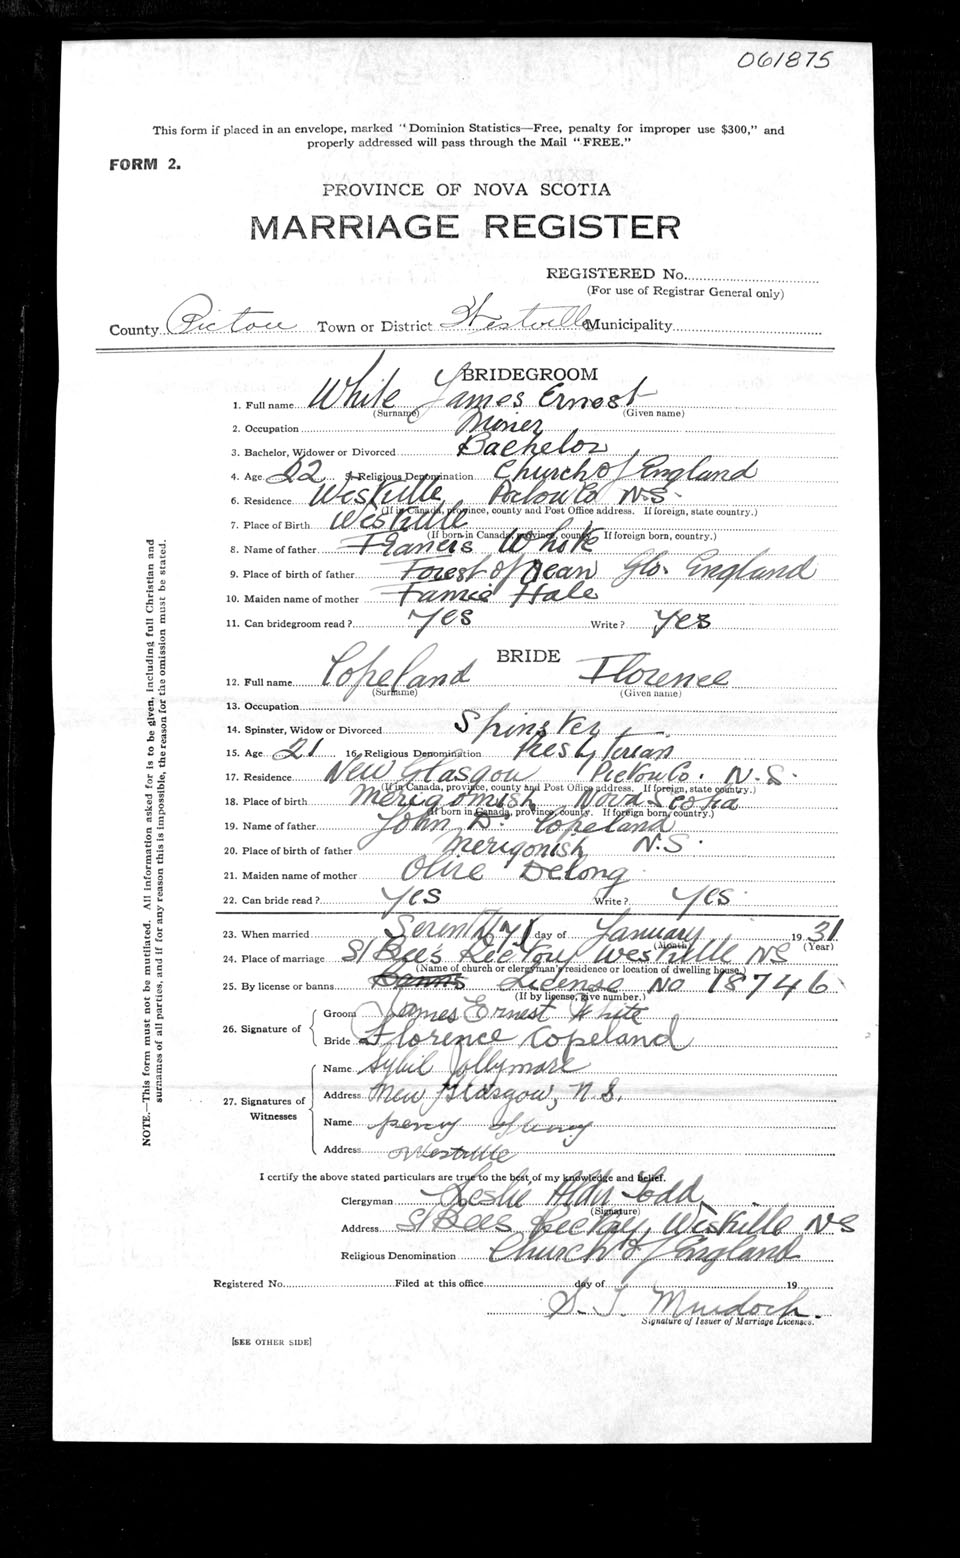 061875
This form if placed in an envelope, marked "Dominion Statistics—Free, penalty for improper use $300," and
properly addressed will pass through the Mail "FREE."
FORM 2.
PROVINCE OF NOVA SCOTIA
MARRIAGE REGISTER
REGISTERED No.
(For use of Registrar General only)
County Pictou Town or District Westville Municipality
BRIDEGROOM
1. Full name White James Ernest
(Surname) (Given name)
2. Occupation Miner
3. Bachelor, Widower or Divorced Bachelor
4. Age 22 5. Religious Denomination Church of England
6. Residence Westville Pictou Co N.S.
(If in Canada, province, county and Post Office address. If foreign, state country.)
7. Place of Birth Westville
(If born in Canada, province, county. If foreign born, country.)
8. Name of father Francis White
9. Place of birth of father Forest of Dean Glo. England
10. Maiden name of mother Fannie Hale
11. Can bridegroom read? Yes Write? Yes
BRIDE
12. Full name Copeland Florence
(Surname) (Given name)
13. Occupation
14. Spinster, Widow or Divorced Spinster
15. Age 21 16. Religious Denomination Presbyterian
17. Residence New Glasgow Pictou Co. N.S.
(If in Canada, province, county and Post Office address. If foreign, state country.)
18. Place of birth Merigomish Nova Scotia
(If born in Canada, province, county. If foreign born, country.)
19. Name of father John D. Copeland
20. Place of birth of father Merigonish N.S.
21. Maiden name of mother Olive Delong
22. Can bride read? Yes Write? Yes
23. When married Seventh 7 day of January 1931
(Month) (Year)
24. Place of marriage St Bee's Rectory Westville NS
(Name of church or clergyman's residence or location of dwelling house.)
25. By license or banns Banns License No 18746
(If by license, give number.)
26. Signature of
Groom James Ernest White
Bride Florence Copeland
27. Signatures of Witnesses
Name Sybil Jollymore
Address New Glasgow, N.S.
Name Percy
Address Westville
I certify the above stated particulars are true to the best of my knowledge and belief.
Clergyman Leslie Alder Todd
(Signature)
Address St Bees Rectory, Westville NS
Religious Denomination Church of England
Registered No. Filed at this office day of 19
S. T. Murdoch.
Signature of Issuer of Marriage Licenses.
[SEE OTHER SIDE]
NOTE.—This form must not be mutilated. All information asked for is to be given, including full Christian and
surnames of all parties, and if for any reason this is impossible, the reason for the omission must be stated.